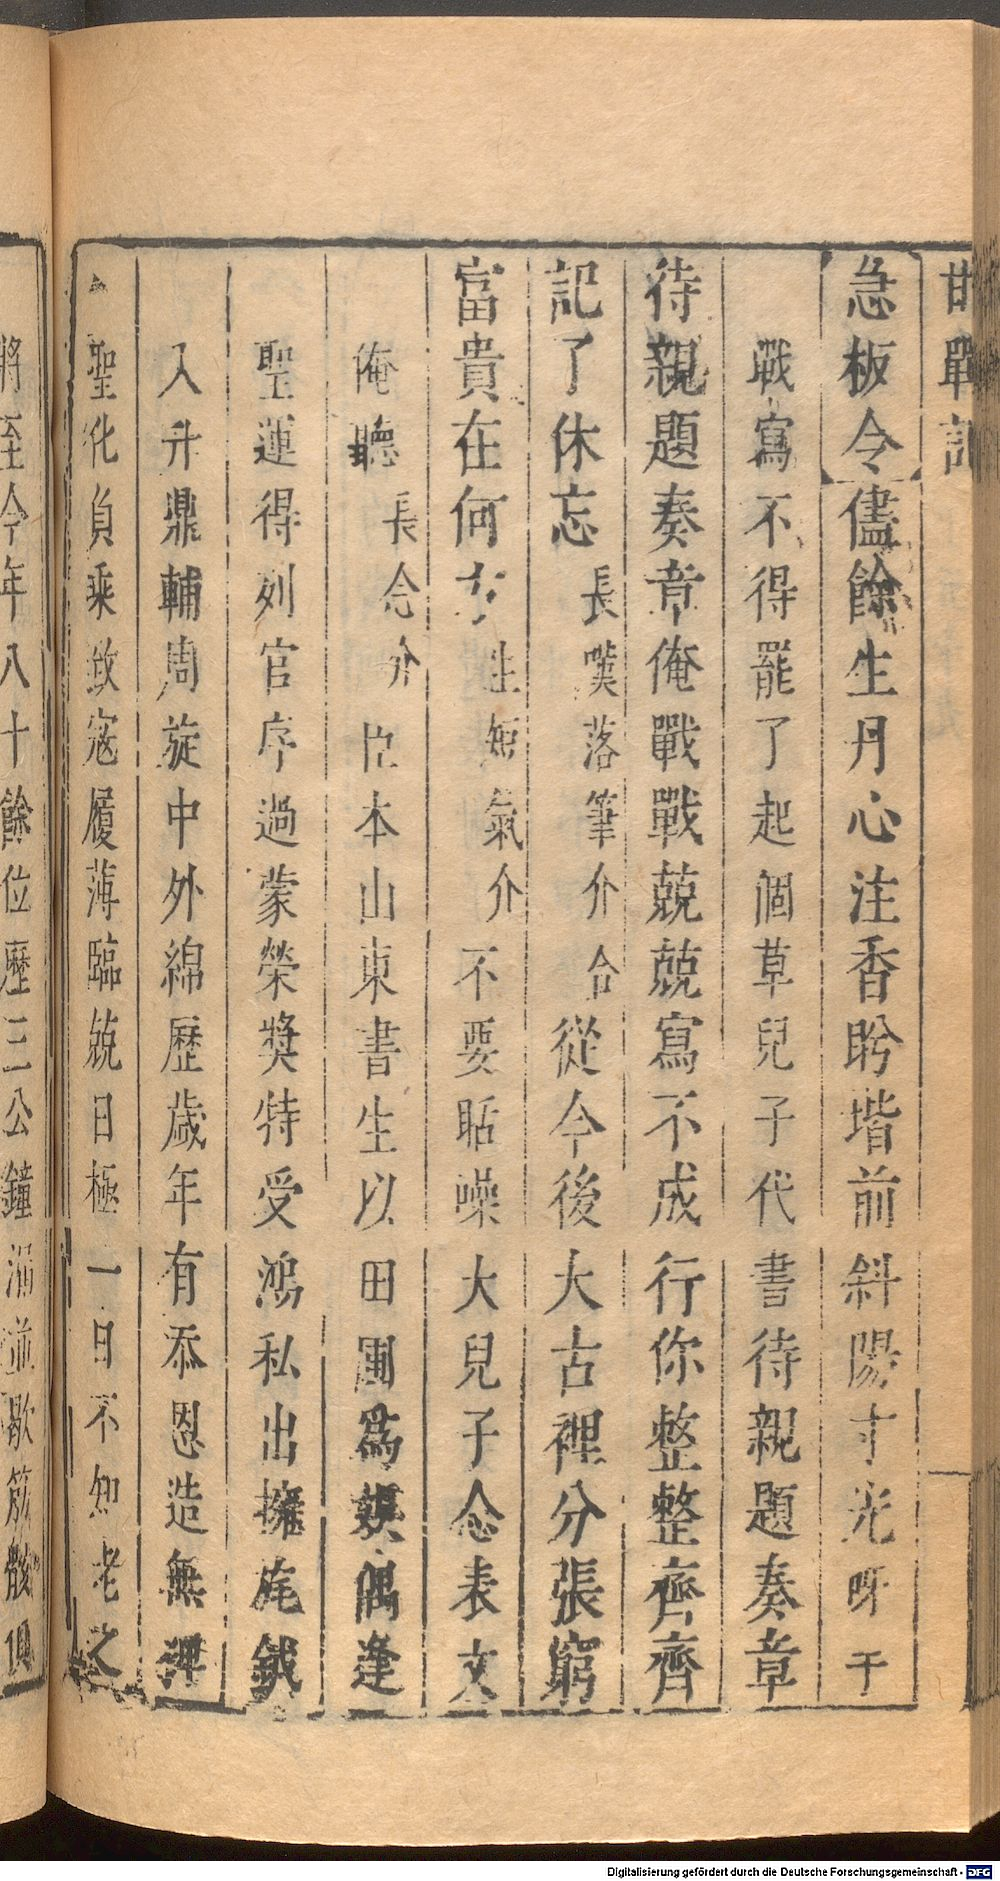 急板令儘餘生丹心注香盻堦前斜陽寸光呀干
戰寫不得罷了起個草兒子代書待親題奏章
待親題奏章俺戰戰兢兢寫不成行你整整齊齊
記了休忘長嘆落筆介合從今後大古裡分張窮
富貴在何方生短氣介不要聒噪大兒子念表文
俺聽長念介臣本山東書生以田圃爲娛偶逢
聖運得列官序過蒙榮獎特受鴻私出擁旄鉞
入升鼎輔周旋中外綿歷歲年有忝恩造無裨
聖化負乘致寇履薄臨兢日極一日不知老之
將至今年八十餘位歷三公鐘漏並歇筋骸俱
Digitalisierung gefördert durch die Deutsche Forschungsgemeinschaft - DFG